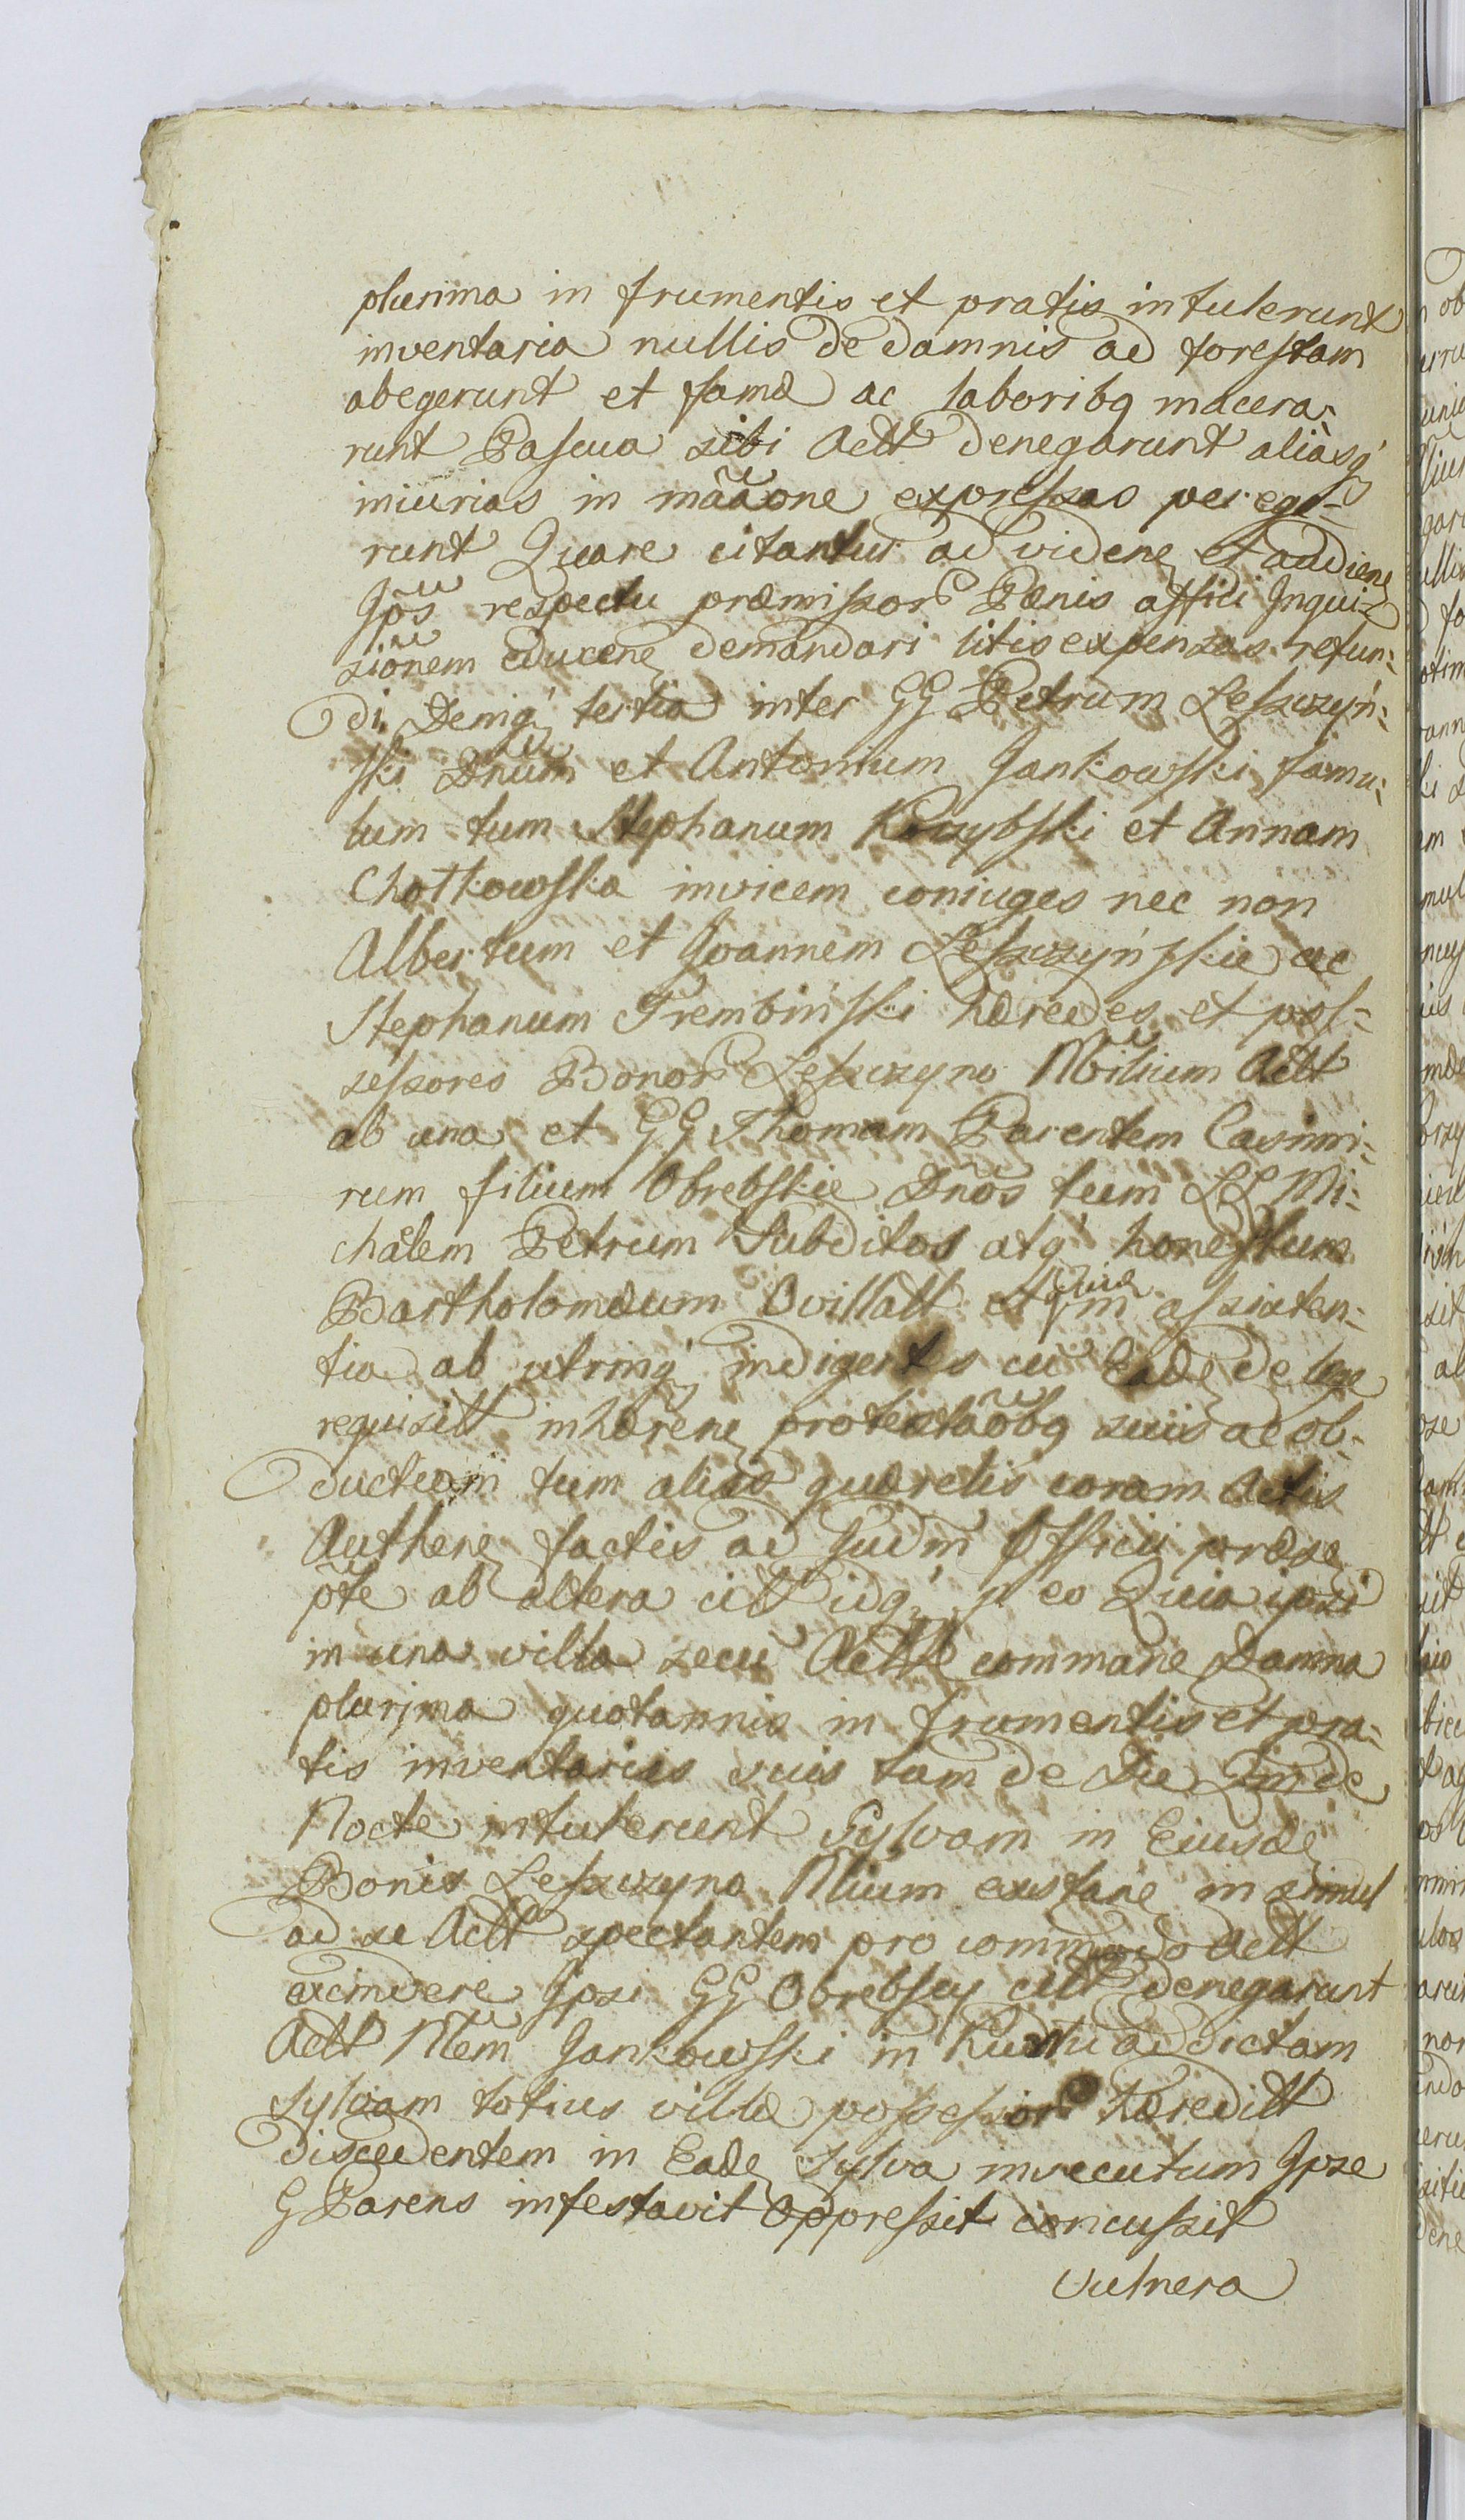 plurima in frumentis et pratis intulerunt
inventaria nullis de damnis ad forestam
abegerunt et famæ ac laboribq macera-
runt Pascua sibi Actt denegarunt aliasq
iniurias in mããone expressas perege-
runt Quare citantur ad videne et audiene
Ipõs respectu præmissor Pænis affici Inqui-
sionem educene demandari litis expensas refun-
di Deniq tertia inter GG Petrum Leszczyń-
ski Dnum et Antonium Jankowski famu-
lum tum Stephanum Krzybski et Annam
Chotkowska invicem coniuges nec non
Albertum et Joannem Leszczyńskie ac
Stephanum Trembiński hæredes et pos-
sessores Bonor Leszczyno Milium Actt
ab una et GG Thomam Parentem Casimi-
rum filium Obrebskie Dños tum LL Mi-
chælem Petrum Subditos atq honestum
Bartholomæum Ovillatt assisten-
tia ab utrinq indigentes cũ Eade de lege
requisitt inhærene protestaõbq suis ac ob-
ductioni tum aliis quærelis coram Actis
Authene factis ad Judm Officii præse
pte ab altera citt idq p eo Quia ipsi
in una villa secũ Actt commane Damna
plurima quotannis in frumentis et pra-
tis inventariis suis tam de Die qm de
Nocte intulerunt Sylvam in Eiusde
Bonis Leszczyno Mlium exstane in simul
ad se Actt spectantem pro commodo Actt
excindere Ipsi GG Obrebscy citt denegarunt
Actt Mlem Jankowski in ad dictam
Sylvam totius villæ possessor Hæreditt
discedentem in Eade Sylva invecutum Ipse
G Parens infestavit oppressit concussit
vulnera